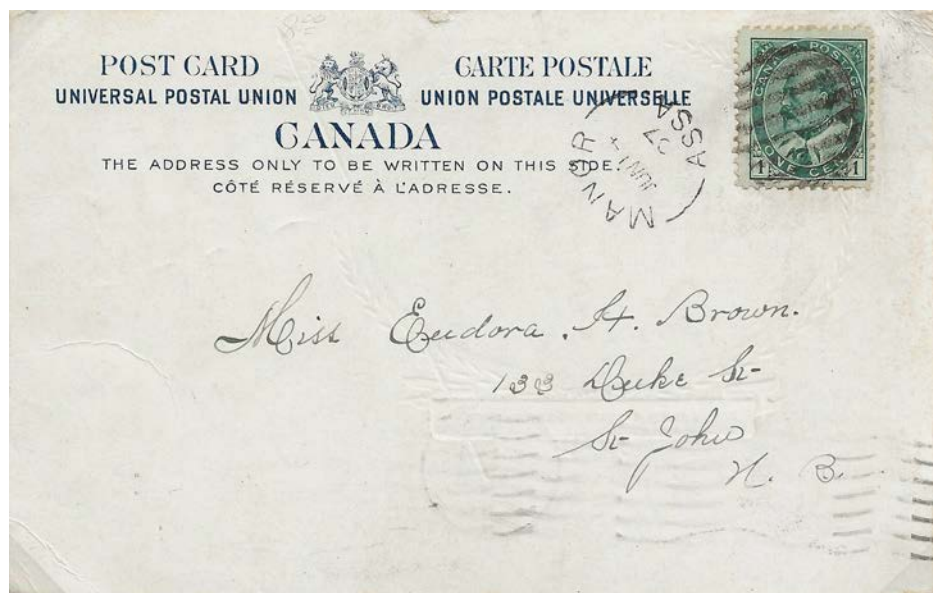 8.00
POST CARD
CARTE POSTALE
UNIVERSAL POSTAL UNION
UNION POSTALE UNIVERSELLE
CANADA
THE ADDRESS ONLY TO BE WRITTEN ON THIS SIDE.
CÔTÉ RÉSERVÉ À L'ADRESSE.
MANOR
ASSA
JUN 1
07
CANADA POSTAGE
1 ONE CENT 1
Miss Eudora. H. Brown.
133 Duke St-
St- John
N. B.